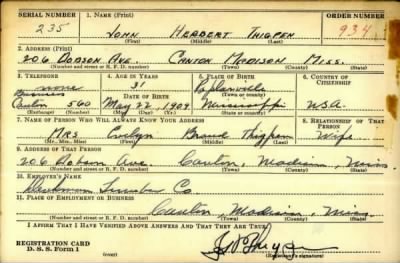 SERIAL NUMBER 1. NAME (Print) ORDER NUMBER
235 JOHN HERBERT THIGPEN 934
(First) (Middle) (Last)
2. ADDRESS (Print)
206 DOBSON AVE. CANTON MADISON MISS.
(Number and street or R. F. D. number) (Town) (County) (State)
3. TELEPHONE 4. AGE IN YEARS 5. PLACE OF BIRTH 6. COUNTRY OF CITIZENSHIP
none 31 Poplarville
DATE OF BIRTH (Town or county)
Canton 560 May 22 1909 Mississippi U.S.A.
(Exchange) (Number) (Mo.) (Day) (Yr.) (State or country)
7. NAME OF PERSON WHO WILL ALWAYS KNOW YOUR ADDRESS 8. RELATIONSHIP OF THAT PERSON
Mrs Evelyn Thigpen Wife
(Mr., Mrs., Miss) (First) (Middle) (Last)
9. ADDRESS OF THAT PERSON
206 Dobson Ave Canton, Madison, Miss
(Number and street or R. F. D. number) (Town) (County) (State)
10. EMPLOYER'S NAME
Lumber Co
11. PLACE OF EMPLOYMENT OR BUSINESS
Canton, Madison, Miss
(Number and street or R. F. D. number) (Town) (County) (State)
I AFFIRM THAT I HAVE VERIFIED ABOVE ANSWERS AND THAT THEY ARE TRUE.
REGISTRATION CARD
D. S. S. Form 1 (over) (Registrant's signature)